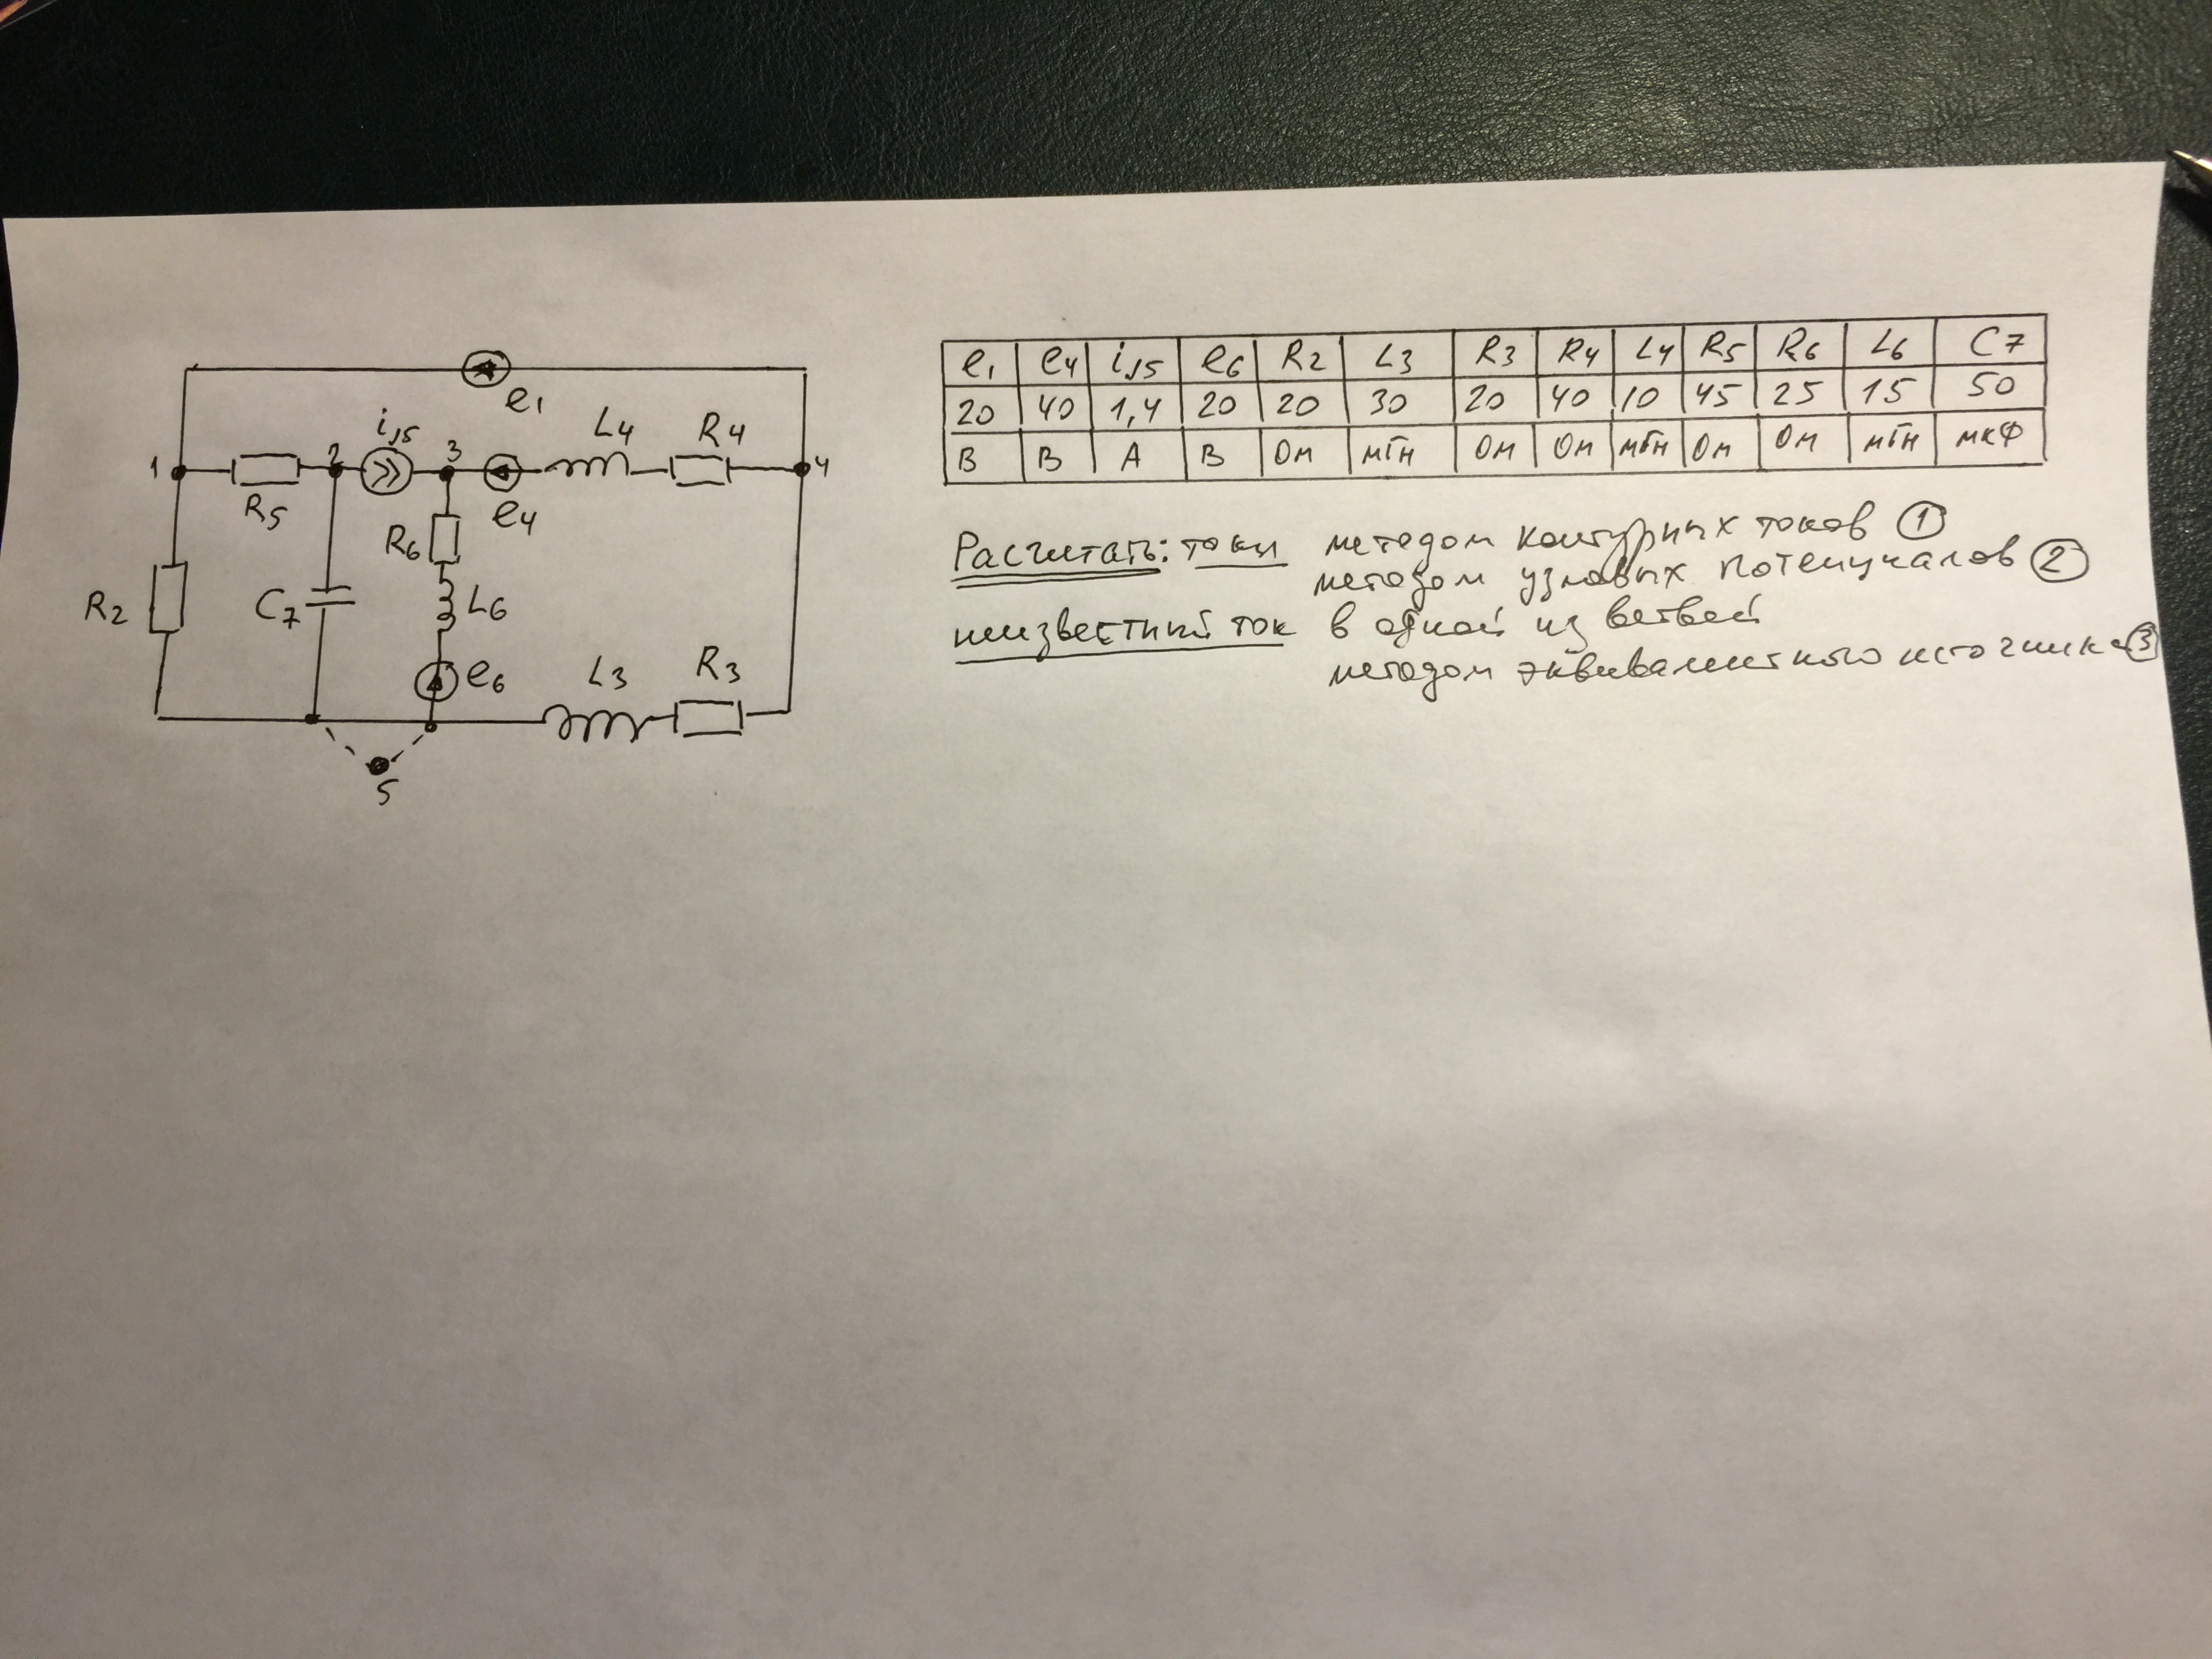 e1
i J5
L4
R4
1
2
3
4
R5
e4
R6
R2
C7
L6
e6
L3
R3
5
e1 e4 iJ5 e6 R2 L3 R3 R4 L4 R5 R6 L6 C7
20 40 1,4 20 20 30 20 40 10 45 25 15 50
В В А В Ом мГн Ом Ом мГн Ом Ом мГн мкФ
Расчитать: токи методом контурных токов ①
методом узловых потенциалов ②
неизвестный ток в одной из ветвей
методом эквивалентного источника ③